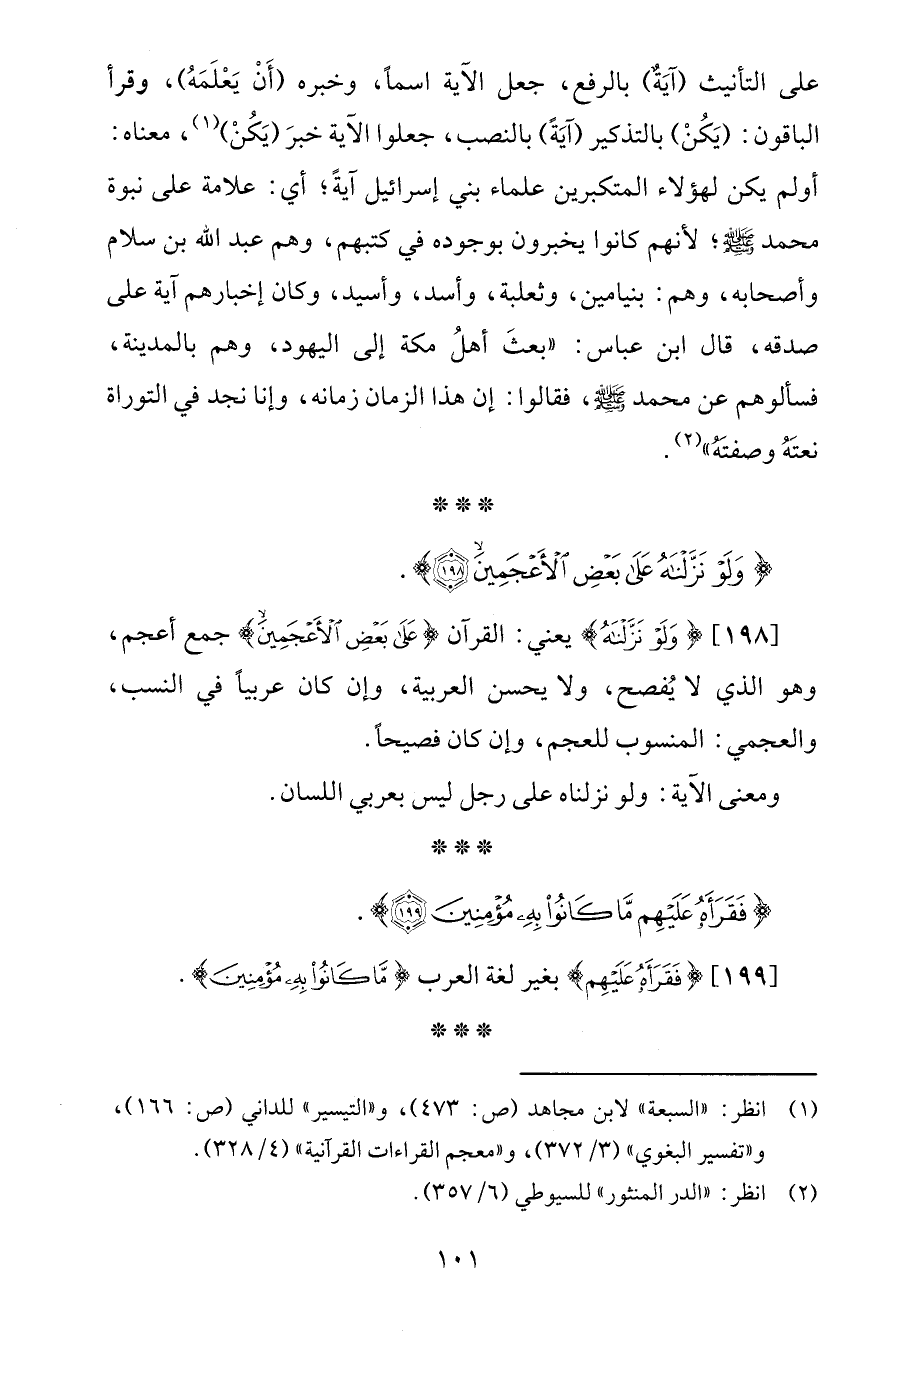 على التأنيث (آيَةٌ) بالرفع، جعل الآية اسماً، وخبره (أَنْ يَعْلَمَهُ)، وقرأ
الباقون: (يَكُنْ) بالتذكير (آيَةً) بالنصب، جعلوا الآية خبرَ (يَكُنْ)(١)، معناه:
أولم يكن لهؤلاء المتكبرين علماء بني إسرائيل آيةً؛ أي: علامة على نبوة
محمد ﷺ؛ لأنهم كانوا يخبرون بوجوده في كتبهم، وهم عبد الله بن سلام
وأصحابه، وهم: بنيامين، وثعلبة، وأسد، وأسيد، وكان إخبارهم آية على
صدقه، قال ابن عباس: «بعثَ أهلُ مكة إلى اليهود، وهم بالمدينة،
فسألوهم عن محمد ﷺ، فقالوا: إن هذا الزمان زمانه، وإنا نجد في التوراة
نعتَهُ وصفتَهُ»(٢).
* * *
﴿ وَلَوْ نَزَّلْنَٰهُ عَلَىٰ بَعْضِ ٱلْأَعْجَمِينَ ۙ ١٩٨﴾.
[١٩٨] ﴿ وَلَوْ نَزَّلْنَٰهُ﴾ يعني: القرآن ﴿عَلَىٰ بَعْضِ ٱلْأَعْجَمِينَ ۙ﴾ جمع أعجم،
وهو الذي لا يُفصح، ولا يحسن العربية، وإن كان عربياً في النسب،
والعجمي: المنسوب للعجم، وإن كان فصيحاً.
ومعنى الآية: ولو نزلناه على رجل ليس بعربي اللسان.
* * *
﴿ فَقَرَأَهُۥ عَلَيْهِم مَّا كَانُوا۟ بِهِۦ مُؤْمِنِينَ ١٩٩﴾.
[١٩٩] ﴿ فَقَرَأَهُۥ عَلَيْهِم﴾ بغير لغة العرب ﴿ مَّا كَانُوا۟ بِهِۦ مُؤْمِنِينَ﴾.
* * *
(١) انظر: «السبعة» لابن مجاهد (ص: ٤٧٣)، و«التيسير» للداني (ص: ١٦٦)،
و«تفسير البغوي» (٣/ ٣٧٢)، و«معجم القراءات القرآنية» (٤/ ٣٢٨).
(٢) انظر: «الدر المنثور» للسيوطي (٦/ ٣٥٧).
١٠١